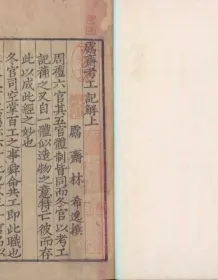 鬳齋考工記解上
鬳齋林 希逸撰
周禮六官其五官體制皆同而冬官以考工
記補之又自一體似造物之意特亡彼而存
此以成此經之妙也
冬官司空掌百工之事舜命共工即此職也